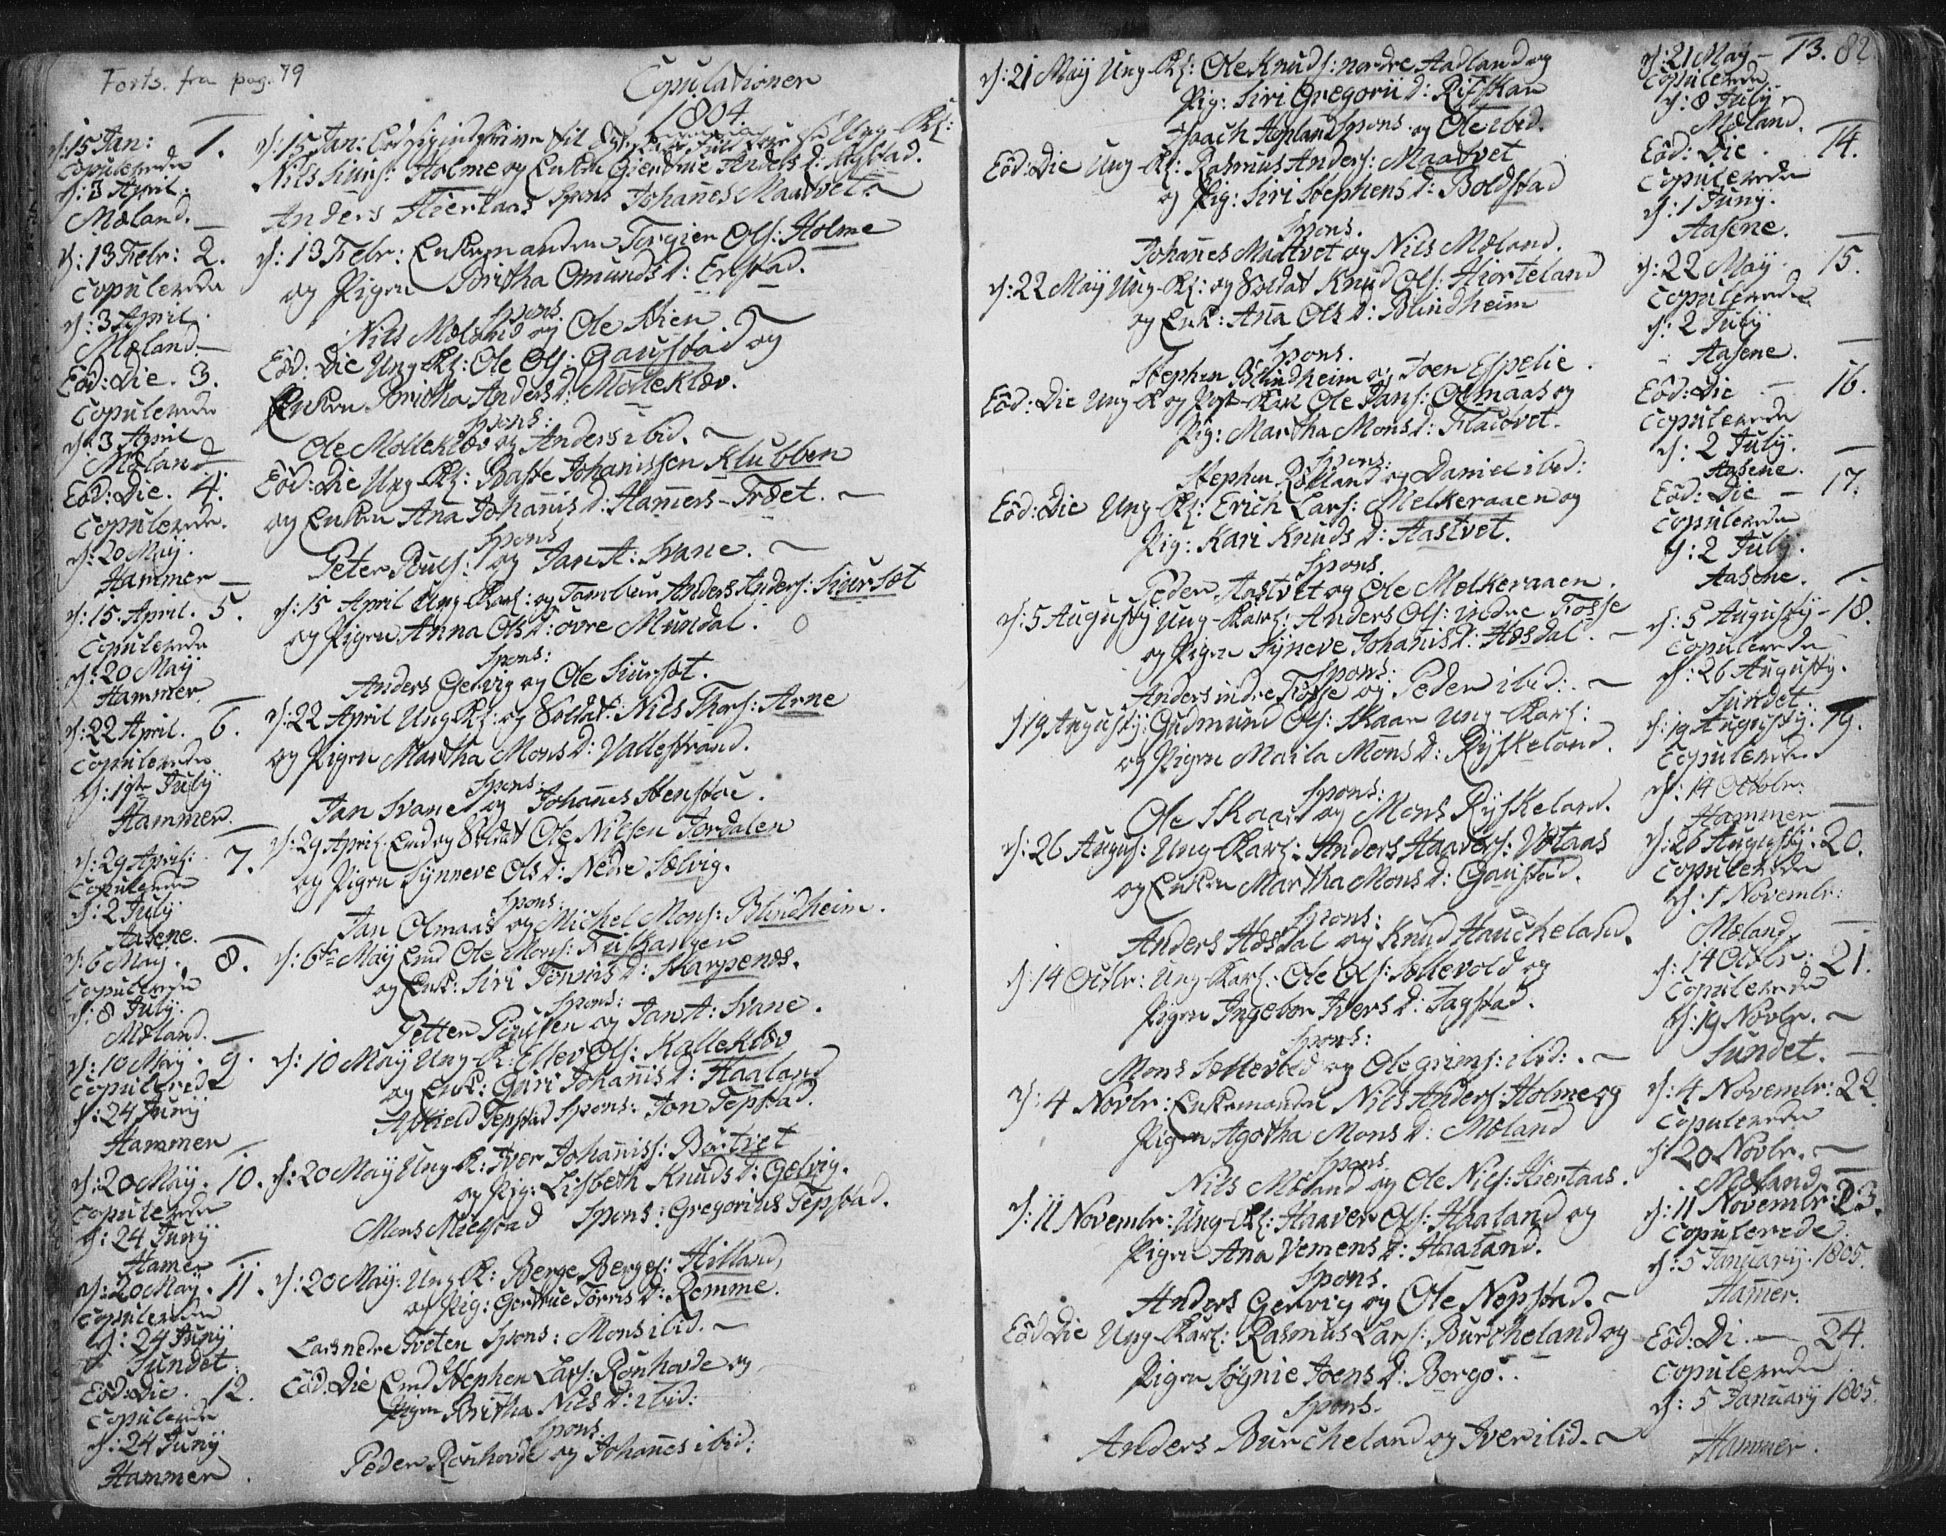 Forts. fra pag. 79
Copulationer
1804.
d: 15 Jan: 1.
Copulerede
d: 3 April.
Mæland.
d: 15 Jan: Ung-Kl:
Nils Siurs: Holme og Enken Giertrue Anders D: Mystad.
Anders Hiertaas Spons Johañes Maatvet
d: 13 Febr: 2.
Copulerede
d: 3 April.
Mæland.
d: 13 Febr: Enkemanden Torgier Ols: Holme
og Pigen Britha Omunds D: Erstad.
Spons.
Nils Mæland og Ole Stien
Eód: Die. 3.
Copulerede
d: 3 April
Mæland
Eód: Die Ung-Kl: Ole Ols: Gaustad og
Enken Britha Anders D: Molleklev.
Spons:
Ole Molleklev og Anders ibid.
Eód: Die. 4.
Copulerede.
d: 20 May.
Hammer
Eód: Die Ung-Kl: Baste Johanissen Klubben
og Enken Ana Johañis D: Hamers-Træet.
Spons
Peter Pouls: og Jan A: Svane.
d: 15 April. 5.
Copulerede
d: 20 May
Hammer
d: 15 April Ung-Karl: og Tambur Anders Anders: Siursæt
og Pigen Anna Ols D: øvre Mundal.
Spons:
Anders Gervig og Ole Siursæt.
d: 22 April. 6.
Copulerede
d: 1ste July
Hammer.
d: 22 April Ung Kl: og Soldat: Nils Thors: Arne
og Pigen Martha Mons D: Vallestrand.
Spons:
Jan Svane og Johañes Stenstøe.
d: 29 April: 7.
Copulerede
d: 2 July
Aasene.
d: 29 April. Emd og Soldat Ole Nilsen Tordalen
og Pigen Synneve Ols D: Nedre Sælvig.
Spons:
Jan Olmaas og Michel Mons: Blindheim.
d: 6 May. 8.
Copulerede
d: 8 July:
Mæland.
d: 6te May Emd Ole Mons: Tuskangen
og Enk: Siri Torris D: Skarpenes.
Spons:
Petter Poulsen og Jan A: Svane.
d: 10 May. 9.
Copulerede
d: 24 Juny
Hammer
d: 10 May Ung-K: Ellev Ols: Kalleklev
og Enk: Guri Johañis D: Haaland
Askield Tepstad Spons: Jon Tepstad.
d: 20 May. 10.
Copulerede
d: 24 Juny
Hamer
d: 20 May Ung-K: Iver Johañis: Børtvet
og Pig: Lisbeth Knuds D: Gælvig.
Mons Mielstad Spons: Gregorius Tepstad.
d: 20 May. 11.
Copulerede
d: 24 Juny
Sundet
d: 20 May: Ung K: Berge Berges: Hilland,
og Pig: Gertrue Torris D: Romme.
Lars nedre Tveten Spons: Mons ibid.
Eód: Die. 12.
Copulerede
d: 24 Juny
Hammer.
Eód: Die Emd Stephen Lars: Ronhovde og
Pigen Britha Nils D: ibid:
Spons.
Peder Ronhovde og Johañes ibid:
82
d: 21 May Ung-Kl: Ole Knuds: nordre Aadland og
Pig: Siri Gregorii D: Risskar
Isaach Hopland Spons og Ole ibid.
d: 21 May 13.
Copulerede
d: 8 July
Mæland.
Eód: Die Ung-Kl: Rasmus Anders: Maatvet
og Pig: Siri Stephens D: Boldstad
Spons.
Johañes Maatvet og Nils Mæland.
Eód: Die. 14.
Copulerede
d: 1 Juny.
Aasene.
d: 22 May Ung-Kl: og Soldat Knud Ols: Hiorteland
og Enk: Ana Ols D: Blindheim
Spons.
Stephen Blindheim og Joen Espelie.
d: 22 May 15.
Copulerede
d: 2 July
Aasene.
Eód: Die Ung-K og Post-Karl Ole Jans: Olmaas og
Pig: Martha Mons D: Flatøvet.
Spons:
Stephen Rølland og Daniel ibid:
Eód: Die 16.
Copulerede
d: 2 July.
Aasene.
Eód: Die Ung-Kl: Erich Lars: Melkeraaen og
Pig: Kari Knuds D: Aastvet.
Spons.
Peder Aastvet og Ole Melkeraaen.
Eód: Die 17.
Copulerede
d: 2 July.
Aasene.
d: 5 Augusty Ung-Karl: Anders Ols: indre Fosse
og Pigen Syneve Johañis D: Hæsdal.
Spons:
Anders indre Fosse og Peder ibid:
d: 5 Augusty 18.
Copulerede
d: 26 Augusty.
Sundet.
d 19 Augusty: Gudmund Ols: Skaar Ung-Karl:
og Pigen Marta Mons D: Ryskeland.
Spons:
Ole Skaar og Mons Ryskeland.
d: 19 Augusty: 19.
Copulerede
d: 14 Octobr:
Hammer
d: 26 Augus: Ung-Karl: Anders Haavors: Votaas
og Enken Martha Mons D: Gaustad.
Spons:
Anders Hæsdal og Knud Haucheland.
d: 26 Augusty: 20.
Copulerede
d: 1 Novembr:
Mæland.
d: 14 Octbr: Ung-Karl: Ole Ols: Søttevold og
Pigen Ingebor Ivers D: Tagstad.
Spons:
Mons Søttevold og Ole grims: ibid:
d: 14 Octbr: 21.
Copulerede
d: 19 Novbr.
Sundet.
d: 4 Novbr: Enkemanden Nils Anders: Holme og
Pigen Agotha Mons D: Mæland
Spons
Nils Mæland og Ole Nils: Hiertaas.
d: 4 Novembr: 22.
Copulerede
d: 20 Novbr.
Mæland
d: 11 Novembr: Ung-Kl: Haaver Ols: Haaland og
Pigen Ana Vemens D: Haaland.
Spons.
Anders Gervig og Ole Nepstad.
d: 11 Novembr: 23.
Copulerede
d: 5 January. 1805.
Hamer.
Eód Die Ung-Karl: Rasmus Lars: Burcheland og
Pigen Søgnie Joens D: Borgo.
Spons.
Anders Burcheland og Iver ibid.
Eód: Di. 24.
Copulerede
d: 5 January 1805.
Hammer.